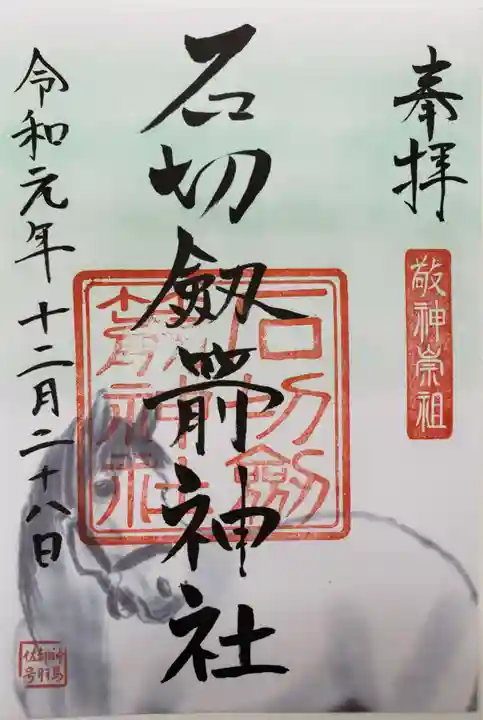 奉拝
敬神崇祖
石切劔箭神社
石切劔
箭神社
令和元年十二月二十八日
神馬